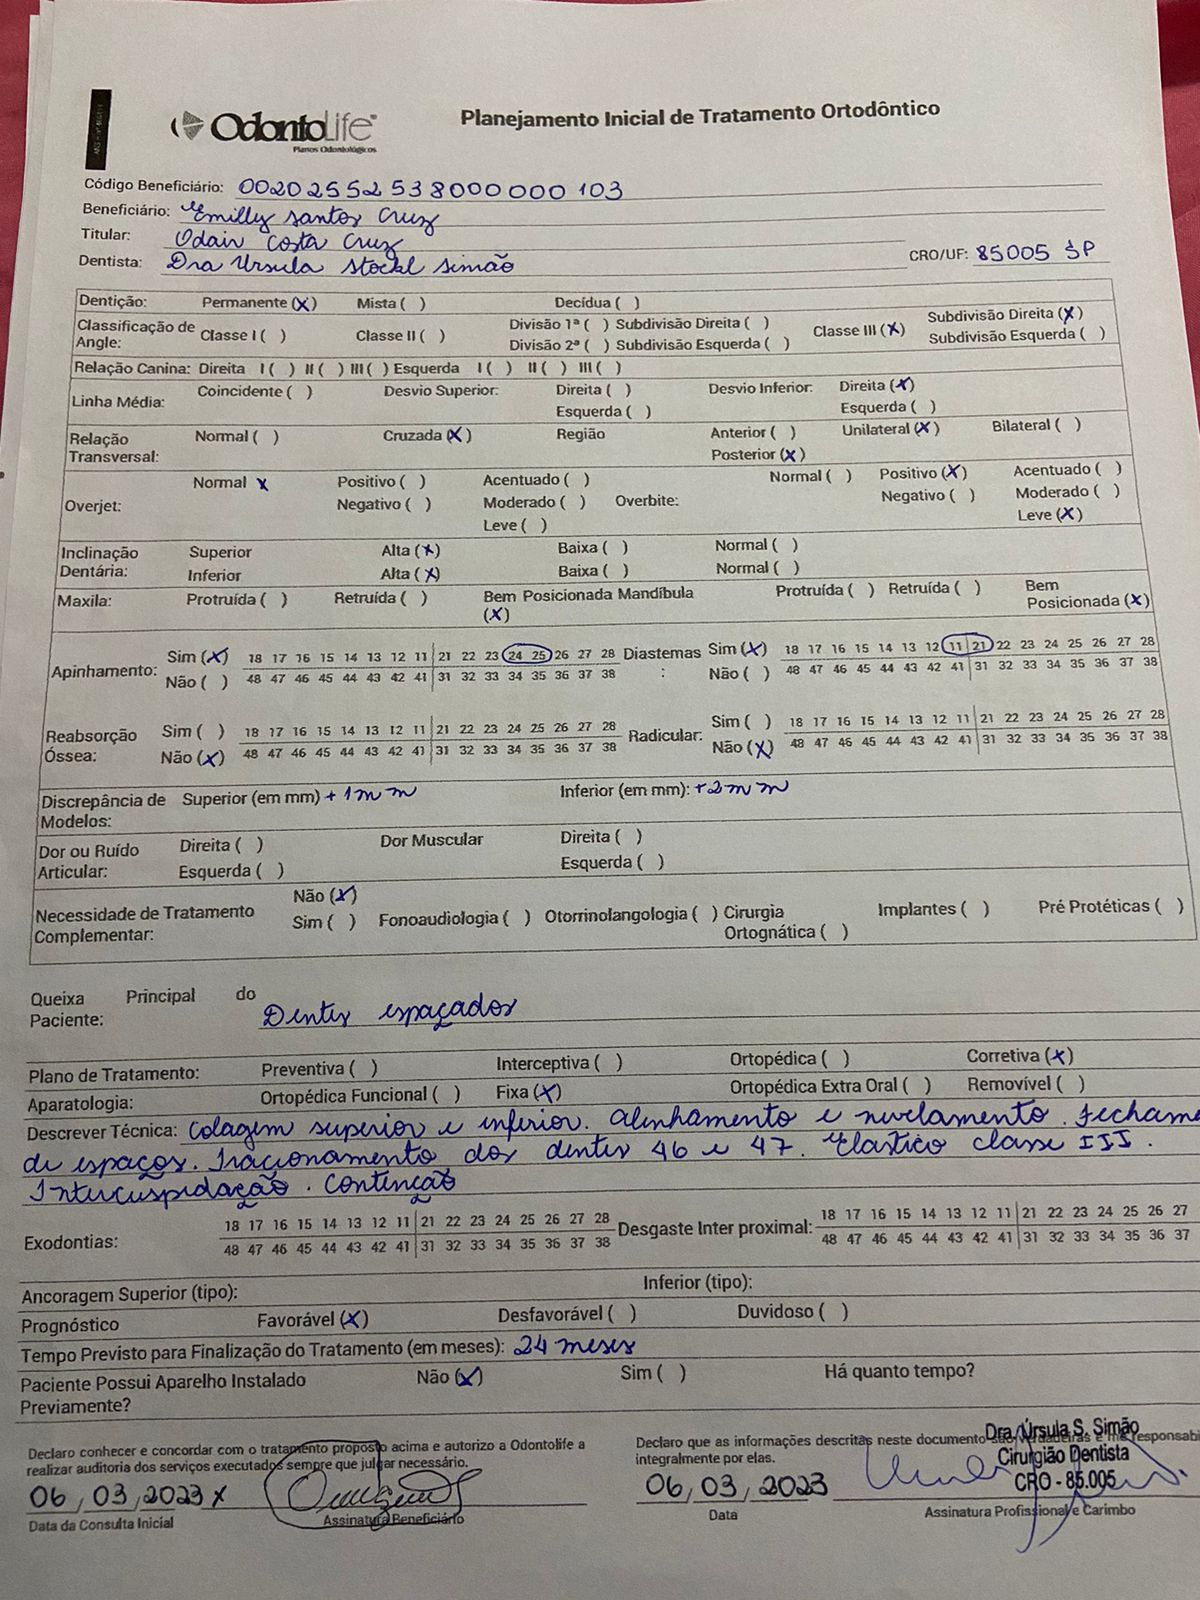 OdontoLife®
Planos Odontológicos
Planejamento Inicial de Tratamento Ortodôntico
Código Beneficiário: 00202552538000000103
Beneficiário: Emilly Santos Cruz
Titular: Odair Costa Cruz
Dentista: Dra Ursula Stockl Simão CRO/UF: 85005 SP
Dentição: Permanente (X) Mista ( ) Decídua ( )
Classificação de Angle: Classe I ( ) Classe II ( ) Divisão 1ª ( ) Subdivisão Direita ( ) Classe III (X) Subdivisão Direita (X)
Divisão 2ª ( ) Subdivisão Esquerda ( ) Subdivisão Esquerda ( )
Relação Canina: Direita I ( ) II ( ) III ( ) Esquerda I ( ) II ( ) III ( )
Linha Média: Coincidente ( ) Desvio Superior: Direita ( ) Desvio Inferior: Direita (X)
Esquerda ( ) Esquerda ( )
Relação Transversal: Normal ( ) Cruzada (X) Região Anterior ( ) Unilateral (X) Bilateral ( )
Posterior (X)
Overjet: Normal X Positivo ( ) Acentuado ( ) Overbite: Normal ( ) Positivo (X) Acentuado ( )
Negativo ( ) Moderado ( ) Negativo ( ) Moderado ( )
Leve ( ) Leve (X)
Inclinação Dentária: Superior Alta (X) Baixa ( ) Normal ( )
Inferior Alta (X) Baixa ( ) Normal ( )
Maxila: Protruída ( ) Retruída ( ) Bem Posicionada (X) Mandíbula Protruída ( ) Retruída ( ) Bem Posicionada (X)
Apinhamento: Sim (X) 18 17 16 15 14 13 12 11 21 22 23 24 25 26 27 28 Diastemas: Sim (X) 18 17 16 15 14 13 12 11 21 22 23 24 25 26 27 28
Não ( ) 48 47 46 45 44 43 42 41 31 32 33 34 35 36 37 38 Não ( ) 48 47 46 45 44 43 42 41 31 32 33 34 35 36 37 38
Reabsorção Óssea: Sim ( ) 18 17 16 15 14 13 12 11 21 22 23 24 25 26 27 28 Radicular: Sim ( ) 18 17 16 15 14 13 12 11 21 22 23 24 25 26 27 28
Não (X) 48 47 46 45 44 43 42 41 31 32 33 34 35 36 37 38 Não (X) 48 47 46 45 44 43 42 41 31 32 33 34 35 36 37 38
Discrepância de Modelos: Superior (em mm) + 1mm Inferior (em mm): +2mm
Dor ou Ruído Articular: Direita ( ) Dor Muscular Direita ( )
Esquerda ( ) Esquerda ( )
Necessidade de Tratamento Complementar: Não (X)
Sim ( ) Fonoaudiologia ( ) Otorrinolangologia ( ) Cirurgia Ortognática ( ) Implantes ( ) Pré Protéticas ( )
Queixa Principal do Paciente: Dentes espaçados
Plano de Tratamento: Preventiva ( ) Interceptiva ( ) Ortopédica ( ) Corretiva (X)
Aparatologia: Ortopédica Funcional ( ) Fixa (X) Ortopédica Extra Oral ( ) Removível ( )
Descrever Técnica: Colagem superior e inferior. Alinhamento e nivelamento. Fechame
de espaços. Tracionamento dos dentes 46 e 47. Elastico classe III.
Intercuspidação. Contenção
Exodontias: 18 17 16 15 14 13 12 11 21 22 23 24 25 26 27 28 Desgaste Inter proximal: 18 17 16 15 14 13 12 11 21 22 23 24 25 26 27
48 47 46 45 44 43 42 41 31 32 33 34 35 36 37 38 48 47 46 45 44 43 42 41 31 32 33 34 35 36 37
Ancoragem Superior (tipo): Inferior (tipo):
Prognóstico Favorável (X) Desfavorável ( ) Duvidoso ( )
Tempo Previsto para Finalização do Tratamento (em meses): 24 meses
Paciente Possui Aparelho Instalado Previamente? Não (X) Sim ( ) Há quanto tempo?
Declaro conhecer e concordar com o tratamento proposto acima e autorizo a Odontolife a
realizar auditoria dos serviços executados sempre que julgar necessário.
06, 03, 2023 X
Data da Consulta Inicial Assinatura Beneficiário
Declaro que as informações descritas neste documento são verdadeiras e me responsabi
integralmente por elas.
Dra. Úrsula S. Simão
Cirurgião Dentista
CRO - 85.005
06, 03, 2023
Data Assinatura Profissional e Carimbo